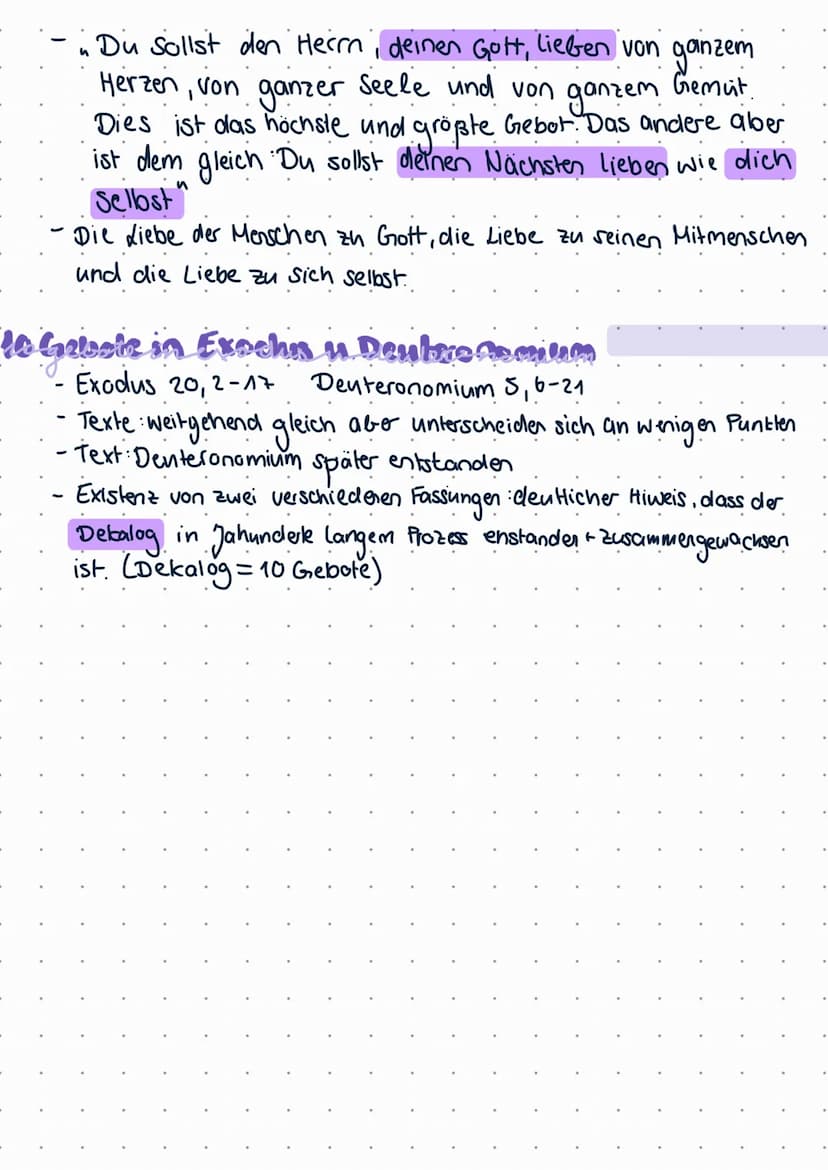 - „Du sollst den Herrn, deinen Gott, lieben von ganzem
Herzen, von ganzer Seele und von ganzem Gemüt.
Dies ist das höchste und größte Gebot. Das andere aber
ist dem gleich: Du sollst deinen Nächsten lieben wie dich
selbst"
- Die Liebe der Menschen zu Gott, die Liebe zu seinen Mitmenschen
und die Liebe zu sich selbst.
10 Gebote in Exodus u Deuteronomium
- Exodus 20, 2-17 Deuteronomium 5, 6-21
- Texte: weitgehend gleich aber unterscheiden sich an wenigen Punkten
- Text: Deuteronomium später entstanden
- Existenz von zwei verschiedenen Fassungen: deutlicher Hiweis, dass der
Dekalog in Jahunderte langem Prozess enstanden + zusammengewachsen
ist. (Dekalog = 10 Gebote)